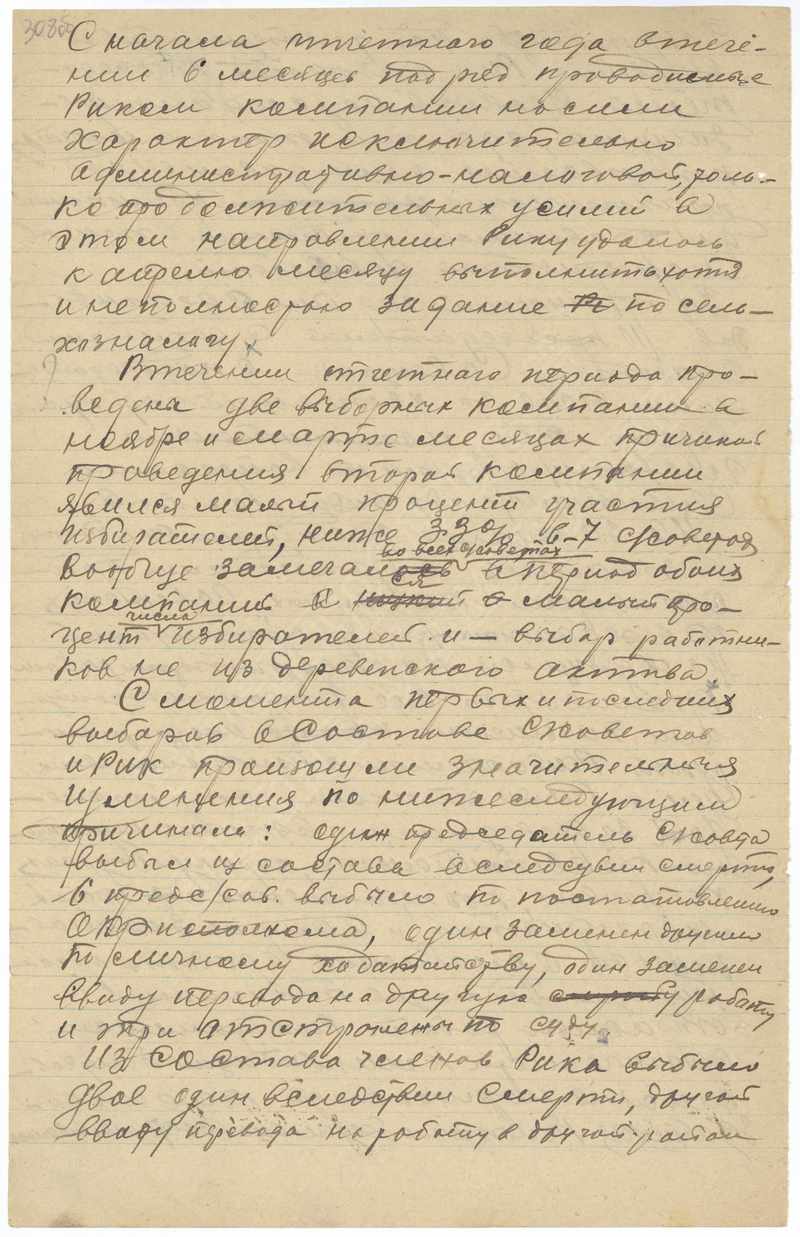 308об
С начала отчетного года втече-
нии 6 месяцев подряд проводимые
Риком компании носили
характер исключительно
административно-налоговой, толь-
ко продолжительных усилий в
этом направлении Рику удалось
к апрелю месяцу выполнить хотя
и неполностью задание по сель-
хозналогу
Втечении отчетного периода про-
ведена две выборных компании в
ноябре и марте месяцах причиной
проведения второй компании
явился малый процент участия
избирателей, ниже 33% в-7 с/советов
во всех с/советах
вообще замечался в период обоих
компаний малый про-
числа
цент избирателей и – выбор работни-
ков не из деревенского актива
С момента первых и последних
выборов в Составе С/советов
и Рик произошли значительныя
изменения по нижеследующим
причинам: один председатель С/совета
выбыл из состава вследсвии смерти,
6 предс/сов. выбыло по постановлению
Окрисполкома, один заменен другим
по личному хадатайству, один заменен
ввиду перевода на другую работу
и три отстранены по суду
Из состава членов Рика выбыло
двое один вследствии смерти, другой
ввиду перевода на работу в другой район